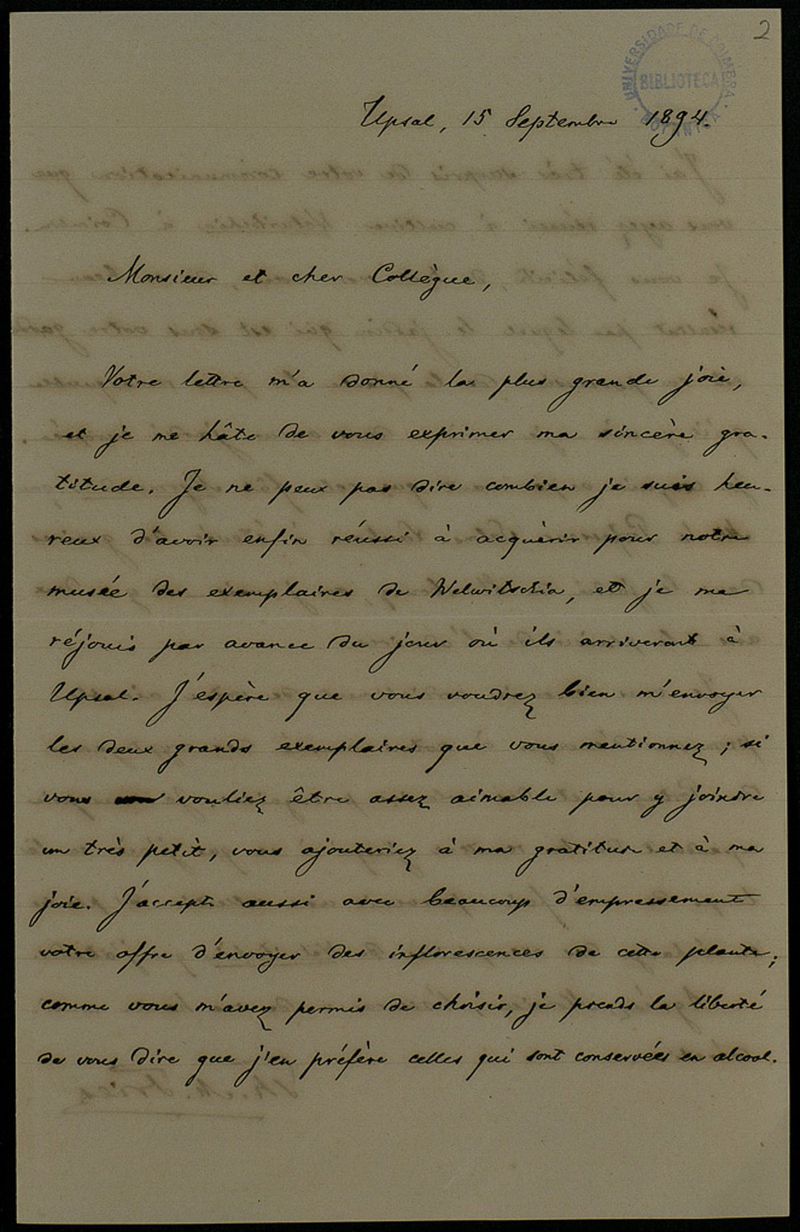 2
UNIVERSIDADE DE COIMBRA
BIBLIOTECA
BOTANICA
Upsal, 15 Septembre 1894.
Monsieur et cher Collègue,
Votre lettre m'a donné la plus grande joie,
et je me hâte de vous exprimer ma sincère gra-
titude. Je ne peux pas dire combien je suis heu-
reux d'avoir enfin réussi à acquérir pour notre
musée des exemplaires de Welwitschia, et je me
réjouis par avance du jour où ils arriveront à
Upsal. J'espère que vous voudrez bien m'envoyer
les deux grands exemplaires que vous mentionnez; si
vous vouliez être assez aimable pour y joindre
un très petit, vous ajouteriez à ma gratitude et à ma
joie. J'accepte aussi avec beaucoup d'empressement
votre offre d'envoyer des inflorescences de cette plante;
comme vous m'avez permis de choisir, je prends la liberté
de vous dire que j'en préfère celles qui sont conservées en alcool.